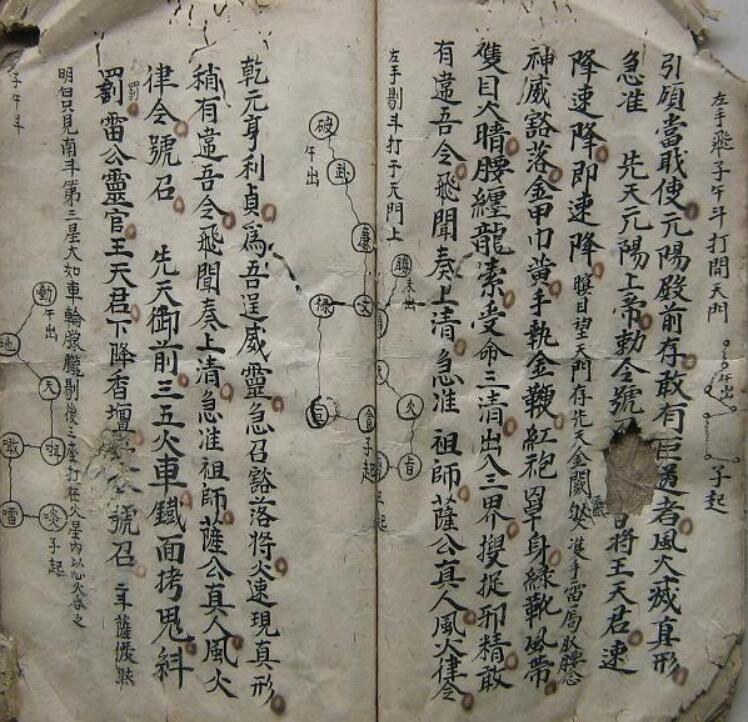 左手飛子午斗打開天門
午出
子起
引頭當戢使元陽殿前存敢有巨違者風火滅真形
急准 先天元陽上帝勅令號 將王天君速
降速降即速降瞋目望天門存先天金闕 雙手雷局 腰念
神威豁落金甲巾黃手執金鞭紅袍罩身綠靴風帶
雙目火睛腰纏龍索受命三清出入三界搜捉邪精敢
有違吾令飛聞奏上清急准 祖師薩公真人風火律令
左手剔斗打于天門上
未出
火
破
午出
武
廉
文
祿
巨
貪
子起
乾元亨利貞為吾逞威靈急召豁落將火速現真形
稍有違吾令飛聞奏上清急准祖師薩公真人風火
律令號召 先天御前三五火車鐵面拷鬼糾
罰雷公靈官王天君下降香壇 號召
罰
明白只見南斗第三星大如車輪朦朧剔後 座打在火星內以心火合之
子午斗
午出
地
天
子起